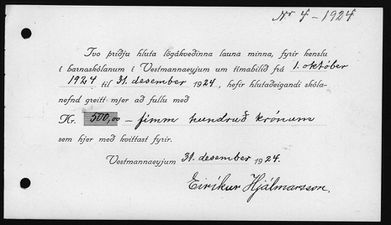 Nr 4 - 1924
Tvo þriðju hluta lögákveðinna launa minna, fyrir kenslu
í barnaskólanum í Vestmannaeyjum um tímabilið frá 1. október
1924 til 31. desember 1924, hefir hlutaðeigandi skóla-
nefnd greitt mjer að fullu með
Kr. 500,00 - fimm hundruð krónum
sem hjer með kvittast fyrir.
Vestmannaeyjum 31. desember 1924.
Eiríkur Hjálmarsson.